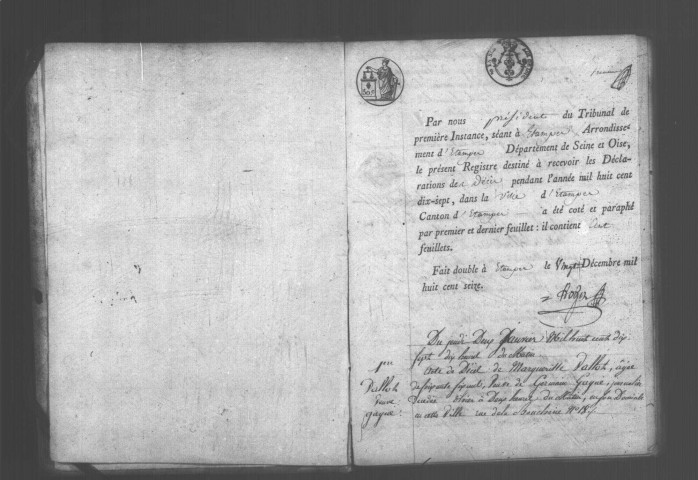 Par nous président du Tribunal de
première Instance, séant à Etampes, Arrondisse-
ment d'Etampes Département de Seine et Oise,
le présent Registre destiné à recevoir les Décla-
rations de décès pendant l'année mil huit cent
dix-sept, dans la Ville d'Etampes
Canton d'Etampes a été coté et paraphé
par premier et dernier feuillet : il contient Cent
feuillets.
Fait double à Etampes le Vingt Décembre mil
huit cent seize.
Du jeudi Deux Janvier Mil huit cent dix
sept dix heures du Matin
1er
Acte de Décès de Marguerite Dallot, âgée
Dallot
de soixante ans, Veuve de Germain Gague,
veuve
Décédée à Deux heures du Matin, en son Domicile
gague
en cette Ville rue de la N° 18